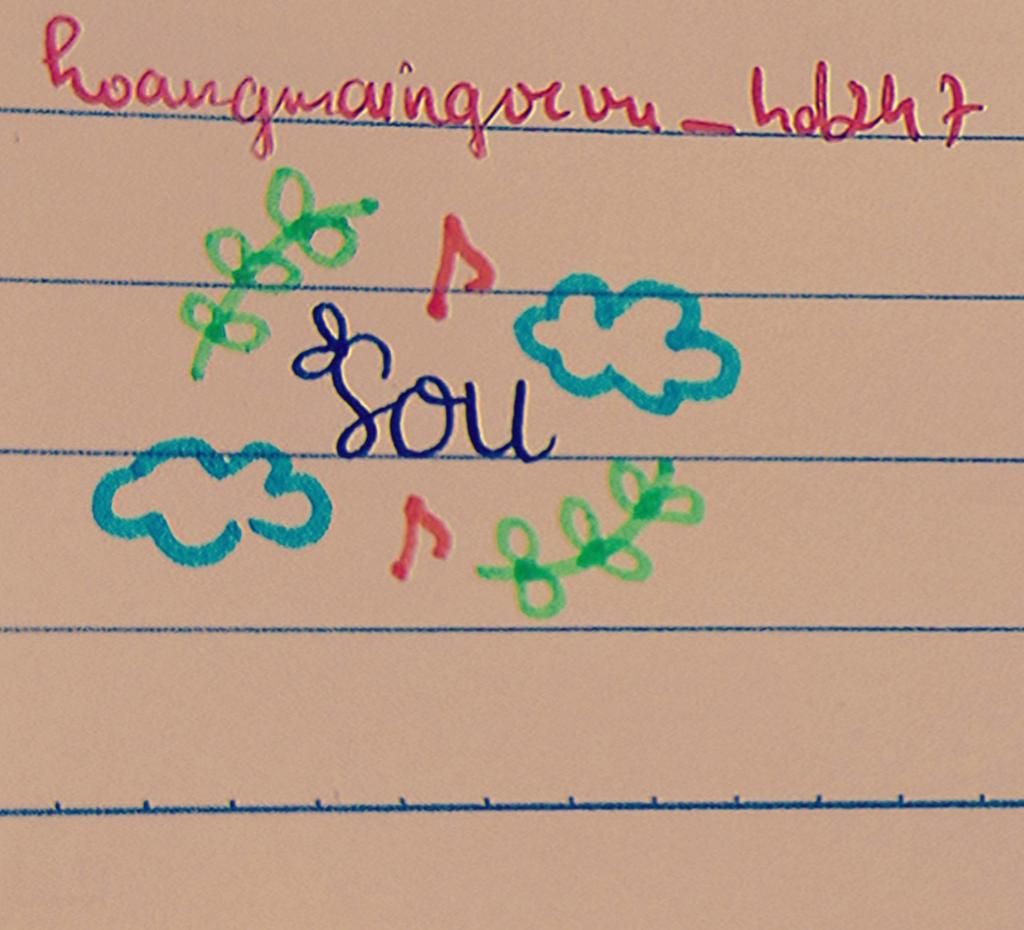 hoangmaingocvu_hdzh7
Sou